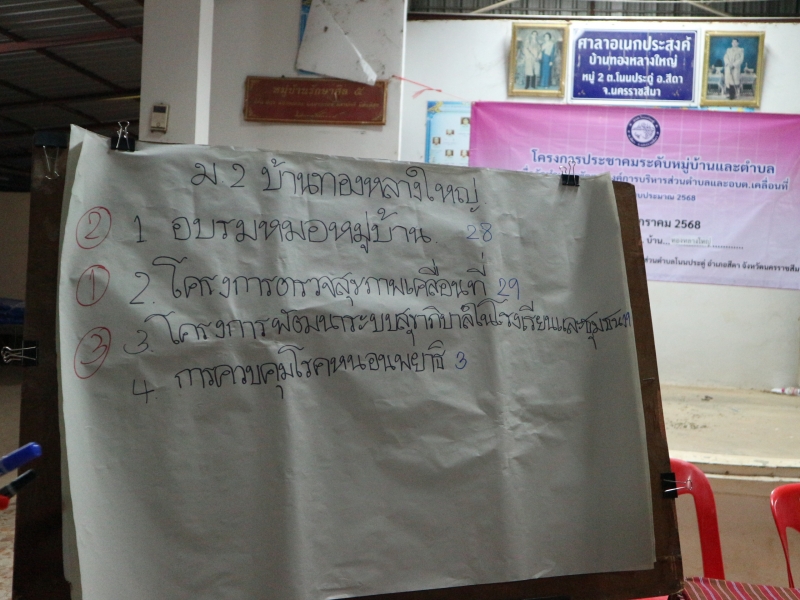 ศาลาอเนกประสงค์
บ้านทองหลางใหญ่
หมู่ 2 ต.โนนประดู่ อ.สีดา
จ.นครราชสีมา
หมู่บ้านรักษาศีล ๕
โครงการประชาคมระดับหมู่บ้านและตำบล
การบริหารส่วนตำบลและอบต.เคลื่อนที่
2568
ราคม 2568
บ้าน... ทองหลางใหญ่
ส่วนตำบลโนนประดู่ อำเภอสีดา จังหวัดนครราชสีมา
ม 2 บ้านทองหลางใหญ่
② 1 อบรมหมอหมู่บ้าน 28
① 2. โครงการตรวจสุขภาพเคลื่อนที่ 29
③ 3. โครงการพัฒนาระบบสุขาภิบาลในโรงเรียนและชุมชน
4. การควบคุมโรคหนอนพยาธิ 3